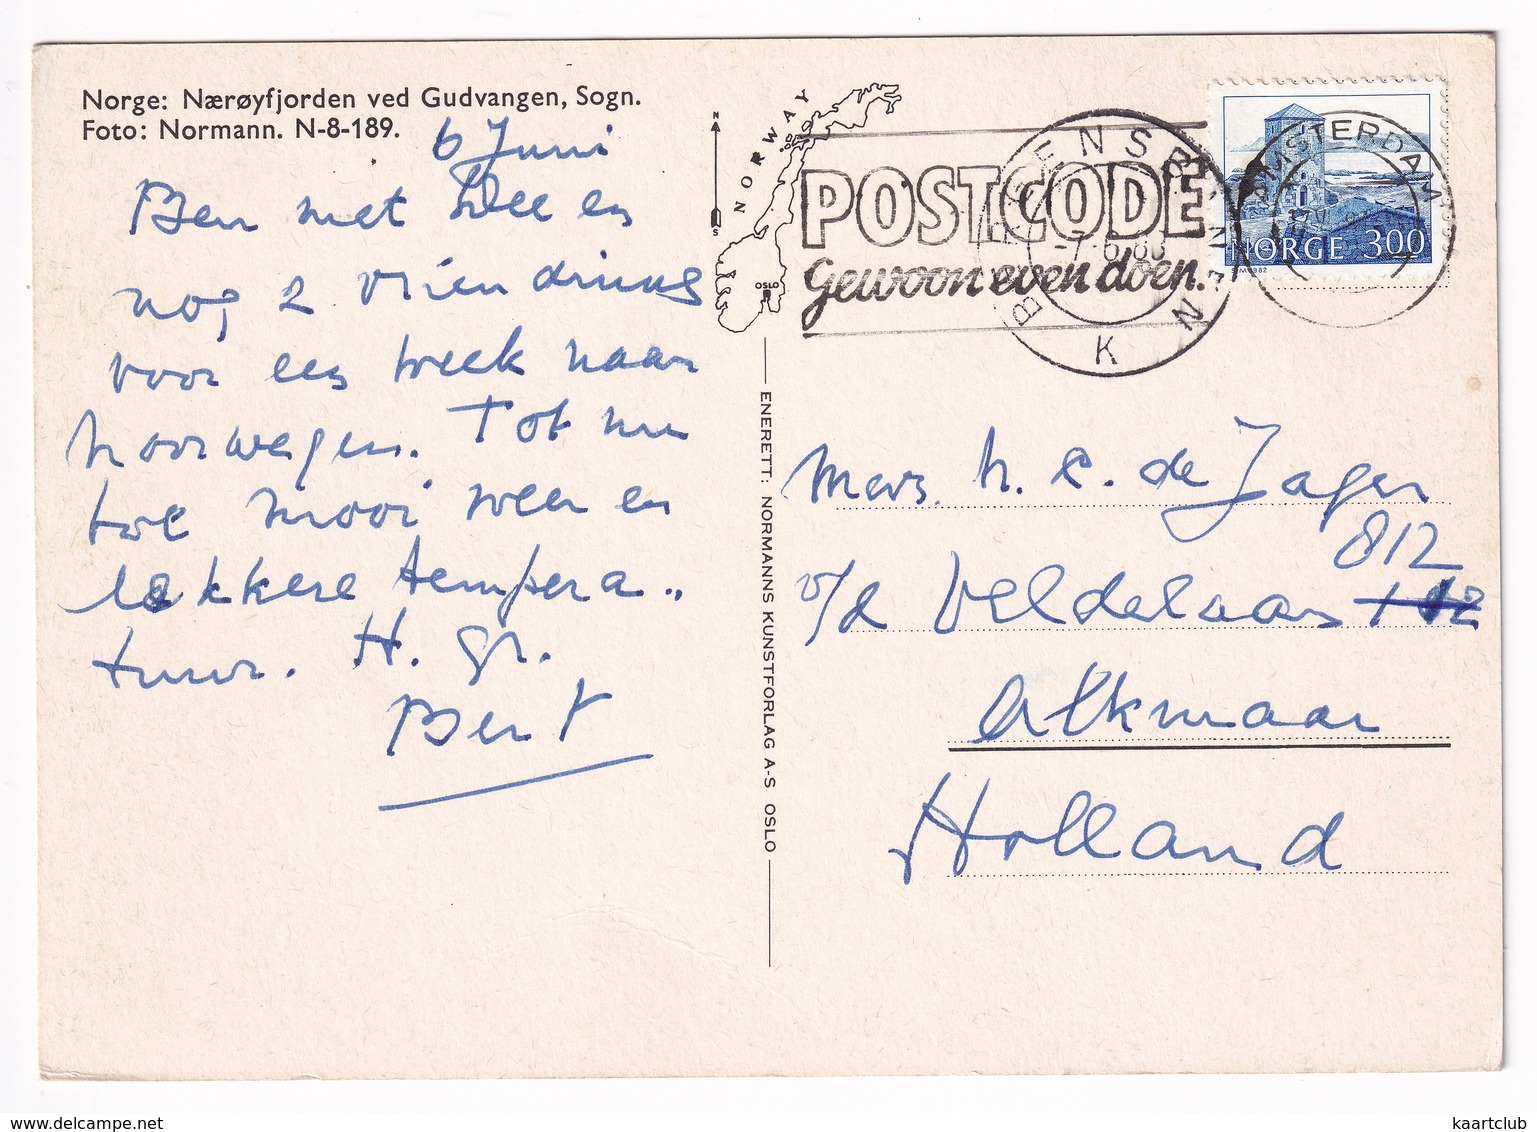 Norge: Nærøyfjorden ved Gudvangen, Sogn.
Foto: Normann. N-8-189.
6 Juni
Ben met Wee en
nog 2 vrienden
voor een week naar
Noorwegen. Tot nu
toe mooi weer en
lekkere tempera„
tuur. H. gr.
Bert
N
S
NORWAY
OSLO
ENERETT: NORMANNS KUNSTFORLAG A-S OSLO
POSTCODE
Gewoon even doen.
BERGENSBANEN
K
AMSTERDAM
NORGE 300
Mevr. H. C. de Jager
812
v/d Veldelaan 112
Alkmaar
Holland
www.delcampe.net
kaartclub